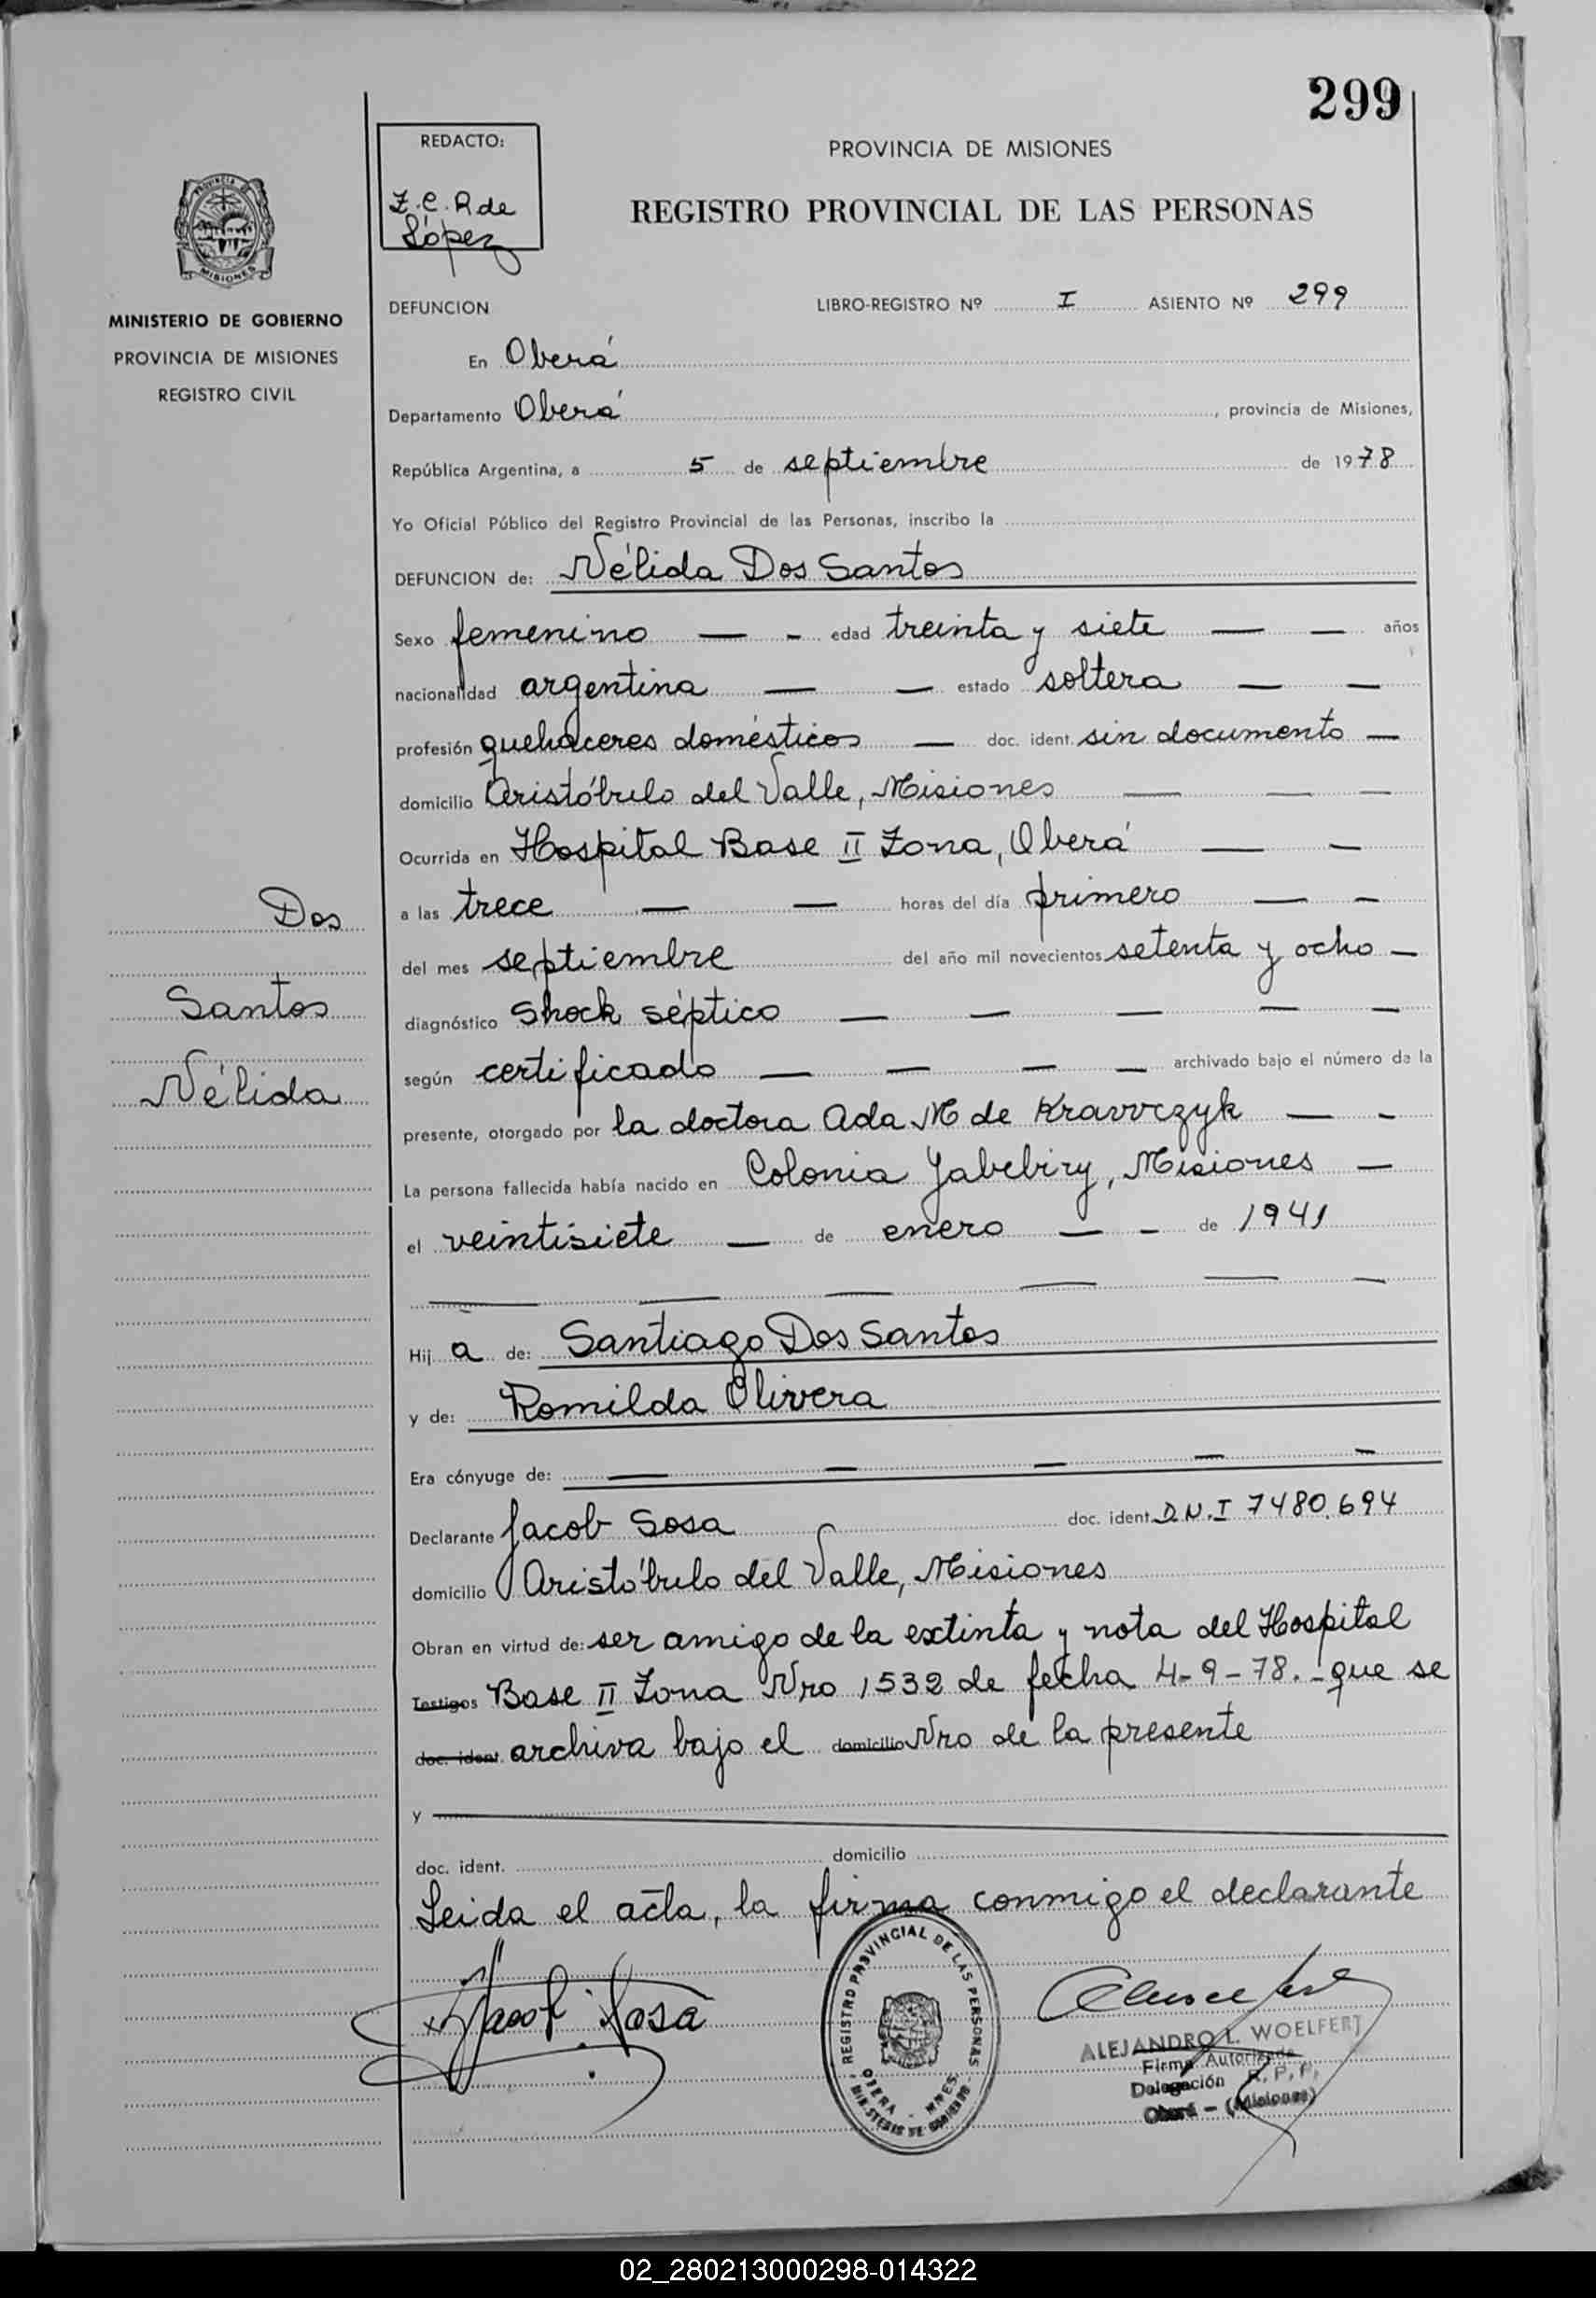 299
REDACTO:
Z.C.R de
López
PROVINCIA DE MISIONES
REGISTRO PROVINCIAL DE LAS PERSONAS
MISIONES
MINISTERIO DE GOBIERNO
PROVINCIA DE MISIONES
REGISTRO CIVIL
DEFUNCION LIBRO-REGISTRO Nº I ASIENTO Nº 299
En Oberá
Departamento Oberá, provincia de Misiones,
República Argentina, a 5 de septiembre de 1978
Yo Oficial Público del Registro Provincial de las Personas, inscribo la
DEFUNCION de: Nélida Dos Santos
Sexo femenino — - edad treinta y siete — — años
nacionalidad argentina — — estado soltera — —
profesión quehaceres domésticos — doc. ident. sin documento —
domicilio Aristóbulo del Valle, Misiones — — —
Ocurrida en Hospital Base II Zona, Oberá — —
a las trece — — horas del día primero — —
del mes septiembre del año mil novecientos setenta y ocho —
diagnóstico Shock séptico — — — — —
según certificado — — — — archivado bajo el número de la
presente, otorgado por la doctora Ada M de Kravvczyk — -
La persona fallecida había nacido en Colonia Yabebiry, Misiones —
el veintisiete — de enero — - de 1941
— — — — — —
Hij a de: Santiago Dos Santos
y de: Romilda Olivera
Era cónyuge de: — — — — -
Declarante Jacob Sosa doc. ident. D.N.I 7480.694
domicilio Aristóbulo del Valle, Misiones
Obran en virtud de: ser amigo de la extinta y nota del Hospital
Testigos Base II Zona Nro 1532 de fecha 4-9-78.- que se
doc. ident archiva bajo el domicilio Nro de la presente
y
doc. ident. domicilio
Leida el acta, la firma conmigo el declarante
Dos
Santos
Nélida
Jacob Sosa
REGISTRO PROVINCIAL DE LAS PERSONAS
OBERA - MNES.
MINISTERIO DE GOBIERNO
ALEJANDRO L. WOELFERT
Firma Autorizada
Delegación R.P.P.
Oberá - (Misiones)
02_280213000298-014322